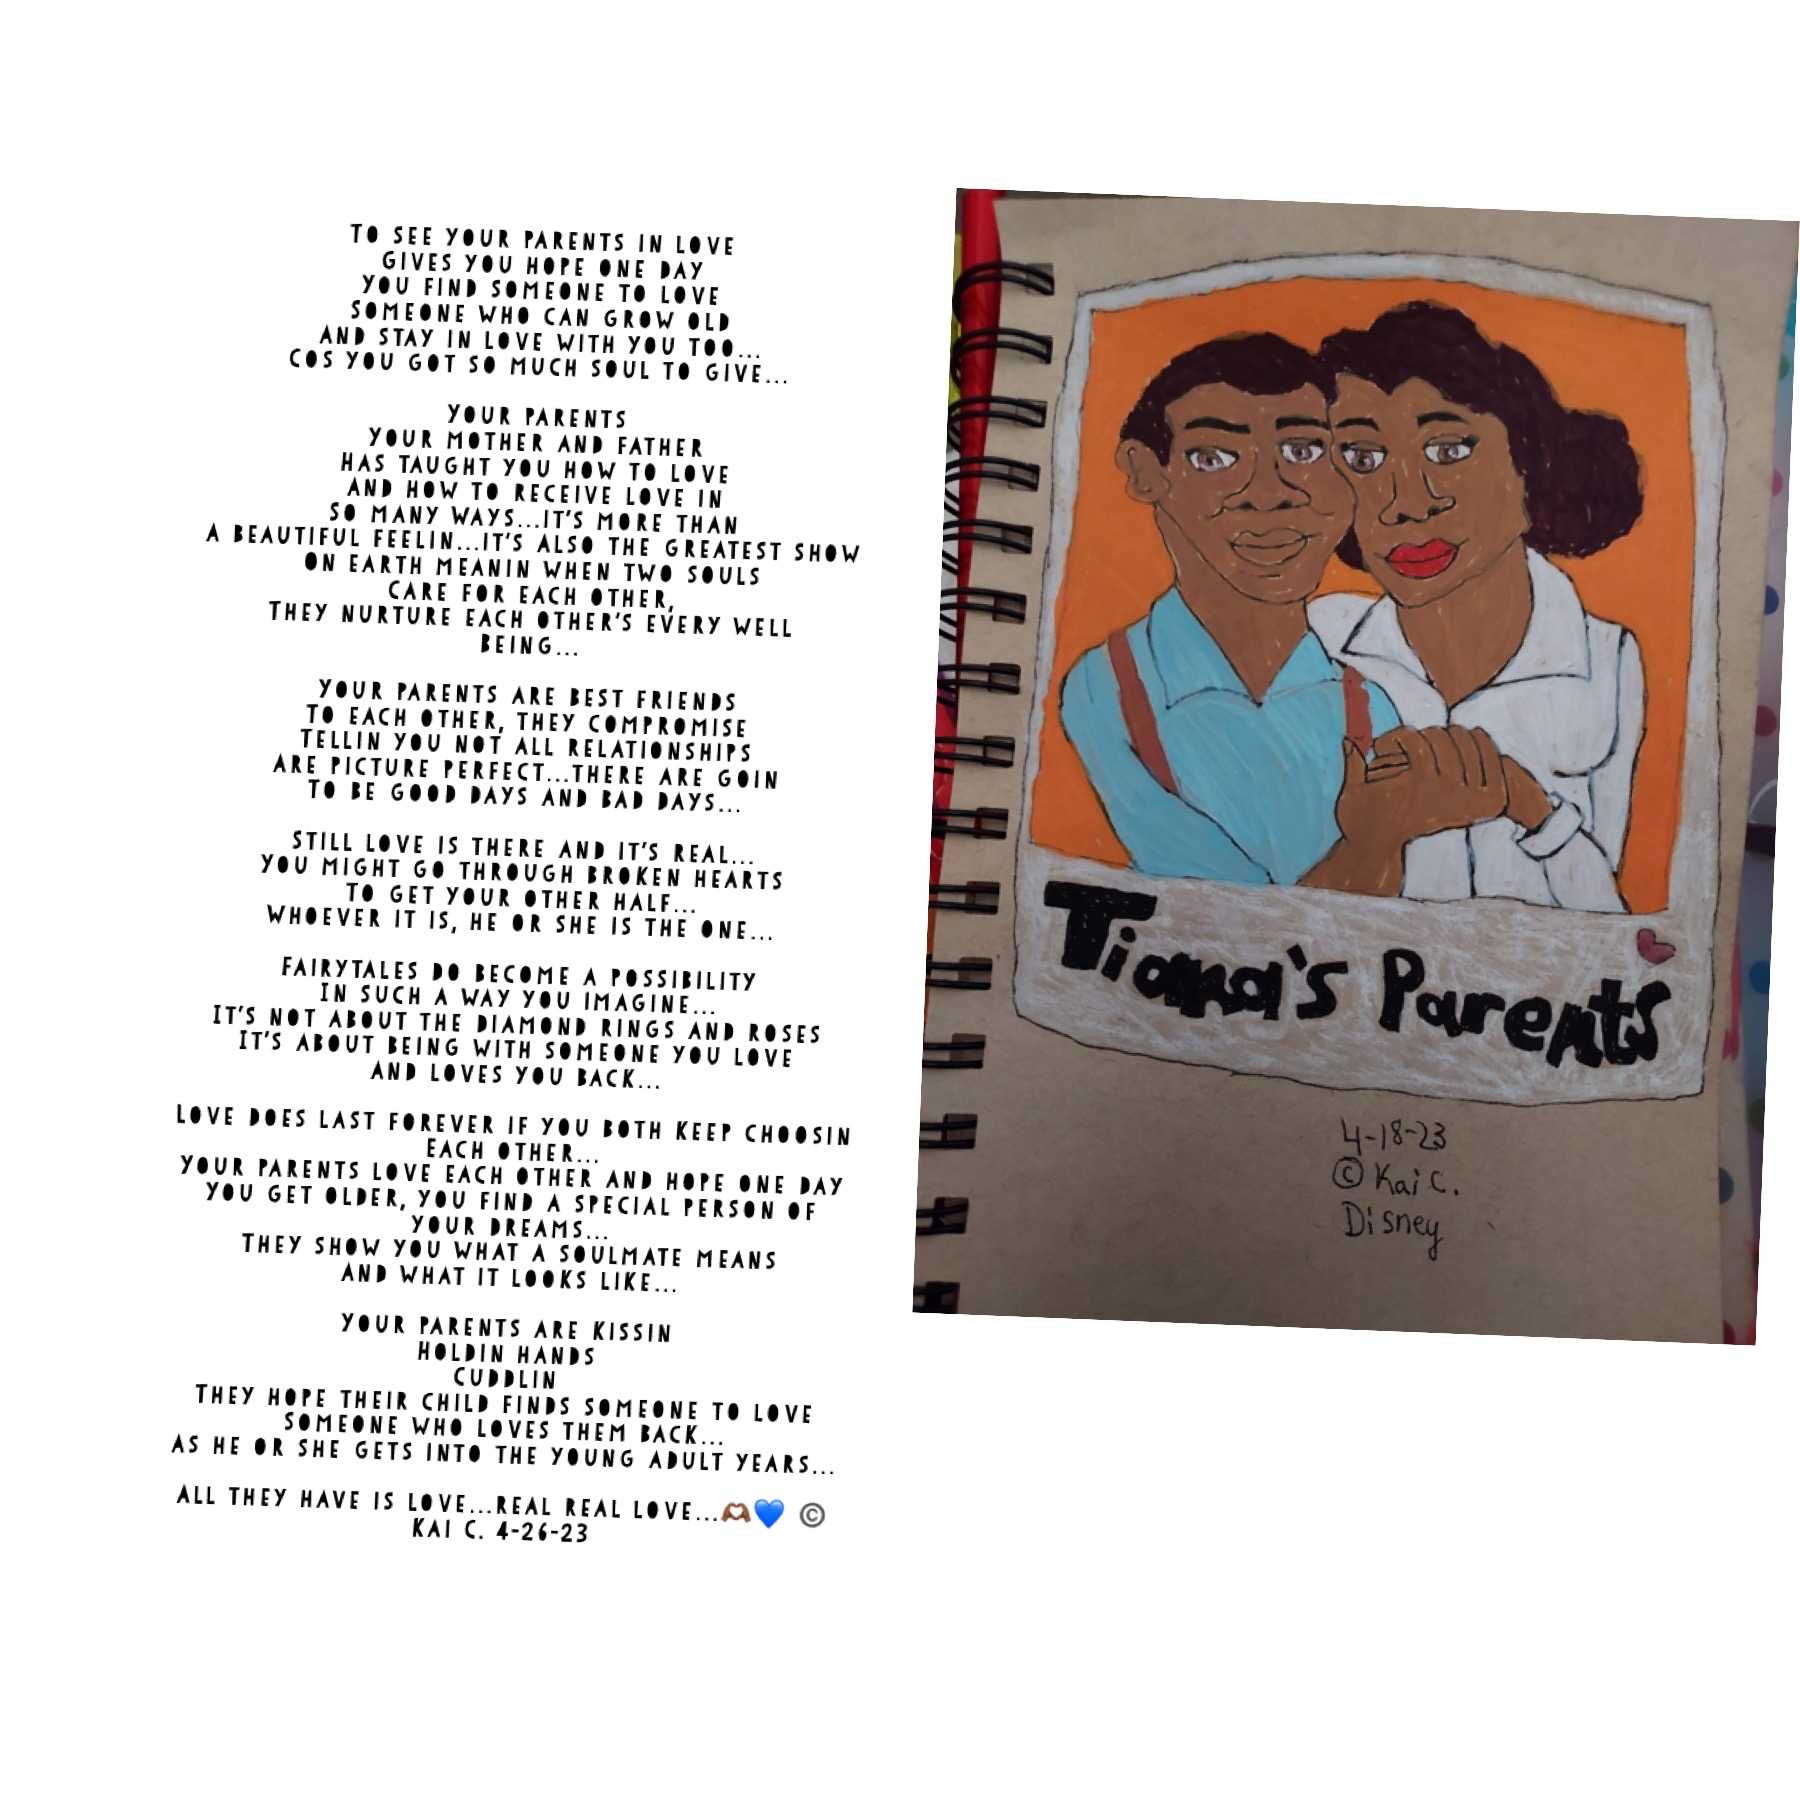 TO SEE YOUR PARENTS IN LOVE
GIVES YOU HOPE ONE DAY
YOU FIND SOMEONE TO LOVE
SOMEONE WHO CAN GROW OLD
AND STAY IN LOVE WITH YOU TOO...
COS YOU GOT SO MUCH SOUL TO GIVE...
YOUR PARENTS
YOUR MOTHER AND FATHER
HAS TAUGHT YOU HOW TO LOVE
AND HOW TO RECEIVE LOVE IN
SO MANY WAYS...IT'S MORE THAN
A BEAUTIFUL FEELIN...IT'S ALSO THE GREATEST SHOW
ON EARTH MEANIN WHEN TWO SOULS
CARE FOR EACH OTHER,
THEY NURTURE EACH OTHER'S EVERY WELL
BEING...
YOUR PARENTS ARE BEST FRIENDS
TO EACH OTHER, THEY COMPROMISE
TELLIN YOU NOT ALL RELATIONSHIPS
ARE PICTURE PERFECT...THERE ARE GOIN
TO BE GOOD DAYS AND BAD DAYS...
STILL LOVE IS THERE AND IT'S REAL...
YOU MIGHT GO THROUGH BROKEN HEARTS
TO GET YOUR OTHER HALF...
WHOEVER IT IS, HE OR SHE IS THE ONE...
FAIRYTALES DO BECOME A POSSIBILITY
IN SUCH A WAY YOU IMAGINE...
IT'S NOT ABOUT THE DIAMOND RINGS AND ROSES
IT'S ABOUT BEING WITH SOMEONE YOU LOVE
AND LOVES YOU BACK...
LOVE DOES LAST FOREVER IF YOU BOTH KEEP CHOOSIN
EACH OTHER...
YOUR PARENTS LOVE EACH OTHER AND HOPE ONE DAY
YOU GET OLDER, YOU FIND A SPECIAL PERSON OF
YOUR DREAMS...
THEY SHOW YOU WHAT A SOULMATE MEANS
AND WHAT IT LOOKS LIKE...
YOUR PARENTS ARE KISSIN
HOLDIN HANDS
CUDDLIN
THEY HOPE THEIR CHILD FINDS SOMEONE TO LOVE
SOMEONE WHO LOVES THEM BACK...
AS HE OR SHE GETS INTO THE YOUNG ADULT YEARS...
ALL THEY HAVE IS LOVE...REAL REAL LOVE...🫶🏾💙 ©
KAI C. 4-26-23
Tiana's Parents
4-18-23
© Kai C.
Disney